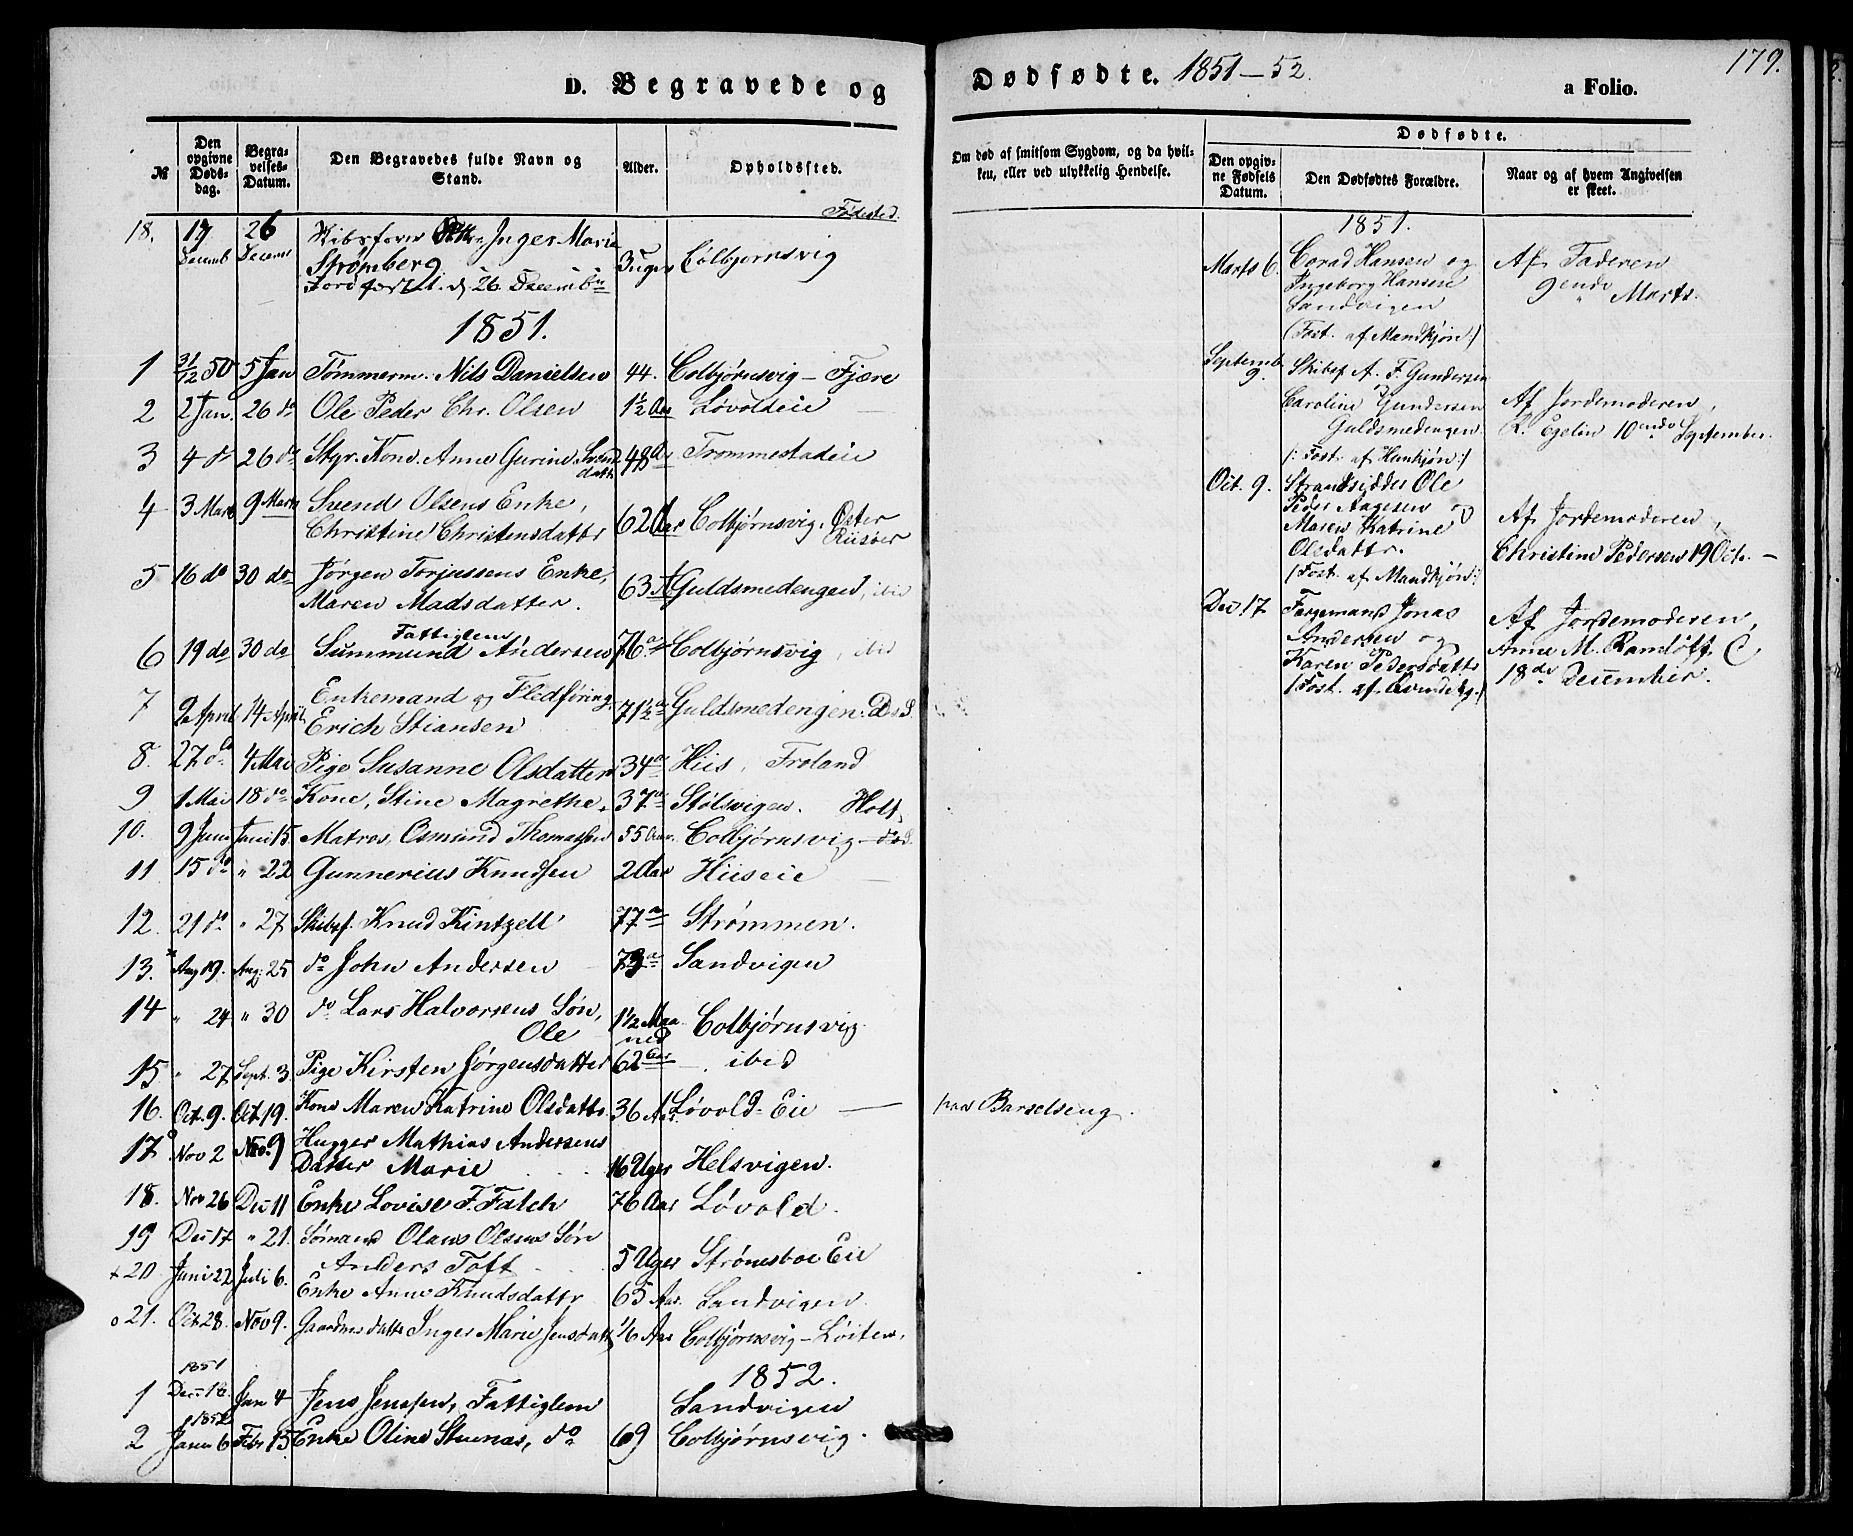 D. Begravede og
Dødfødte. 1851-52.
a Folio.
179.
№
Den opgivne Dødsdag.
Begravelses-Datum.
Den Begravedes fulde Navn og Stand.
Alder.
Opholdssted.
Fødested.
Om død af smitsom Sygdom, og da hvilken, eller ved ulykkelig Hendelse.
Dødfødte.
Den opgivne Fødsels Datum.
Den Dødfødtes Forældre.
Naar og af hvem Angivelsen er skeet.
18. 17 Decemb 26 Decemb Inger Maria
Strømberg 3 Uger Colbjørnsvig
26 Decembr
1851.
1 31/12 50 5 Jan Tømmerm. Nils Danielsen 44. Colbjørnsvig - Fjære
2 2 Jan. 26 do Ole Peder Chr. Olsen 1½ Aar Løvoldeie
3 4 do 26 do Styr. Kone Anne Gurine Svends datter 48 A Trommestadeie
4 3 Mart 9 Marts Svend Olsens Enke,
Christine Christensdattr 62 Aar Colbjørnsvig. Øster Riisøer
5 16 do 30 do Jørgen Torjussens Enke,
Maren Madsdatter. 63 A Guldsmedengen, ibid
Fattiglem
6 19 do 30 do Summund Andersen 76 a Colbjørnsvig, ibid
7 2 April 14 April Enkemand og Fledføring
Erich Stiansen 71½ a Guldsmedengen. D.S.
8. 27 do 4 Mai Pige Susanne Olsdatter 34 a Hiis, Froland
9 1 Mai 18 do Kone, Stine Magrethe. 37 a Stølsvigen. Holt,
10. 9 Juni Juni 15 Matros, Osmund Thomassen 55 Aar. Colbjørnsvig - ds.
11 15 do " 22 Gunnerius Knudsen 2 Aar Hiiseie
12. 21 do " 27 Skibsf. Knud Kintzell 77 a Strømmen.
13. Aug 19. Aug: 25 do John Andersen 73 a Sandvigen
14 " 24. " 30 do Lars Halvorsens Søn,
Ole 1½ Maaned Colbjørnsvig.
15 " 27 Sept. 3 Pige Kirsten Jørgensdatter 62 Aar - . ibid
16. Oct. 9. Oct. 19. Kone Maren Katrine Olsdattr. 36 Aar. Løvold-Eie - paa Barselseng.
17 Nov 2 Nov. 9 Hugger Mathias Andersens
Datter Marie 16 Uger Helsvigen.
18. Nov 26 Dec 11 Enke Lovise F. Falch 76 Aar Løvold.
19 Dec 17 " 21. Sømand Olaus Olsens Søn
Anders Toft 5 Uger Strømsboe Eie
+ 20 Juni 22 Juli 6. Enke Anne Knudsdattr 65 Aar. Sandvigen.
o 21. Oct 28. Nov 9. Gaardms datter Inger Marie Jensdattr 16 Aar Colbjørnsvig - Løiten.
1852.
1 1851 Dec. 16. Jan 4 Jens Jenssen, Fattiglem Sandvigen
2 1852 Janu 6 Febr 15 Enke Oline Stuenæs, do 69 Colbjørnsvig.
1851.
Marts 6. Conrad Hansen og
Ingeborg Hansen
Sandvigen
(Fost. af Mandkjøn:)
Af Faderen
9ende Marts.
Septemb. 9. Skibsf. A. F. Gundersen
Caroline Gundersen
Guldsmedengen.
(: Fost. af Hunkjøn:)
Af Jordemoderen,
R. Egelin 10ende September.
Oct. 9. Strandsidder Ole
Peder Aagesen og
Maren Katrine
Olsdattr.
(Fost. af Mandkjøn:)
Af Jordemoderen,
Christine Pedersen 19 Oct. -
Dec 17 Fargemand Jonas
Andersen og
Karen Pedersdattr
(Fost. af Qvindekj.)
Af Jordemoderen,
Anne M. Randøff C
18de December.